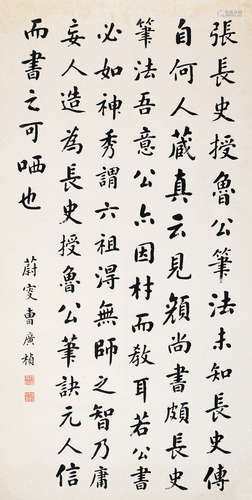 張長史授魯公筆法未知長史傳
自何人藏真云見顏尚書頗長史
筆法吾意公亦因材而教耳若公書
必如神秀謂六祖淂無師之智乃庸
妄人造為長史授魯公筆訣元人信
而書之可哂也
蔚叟曹廣楨